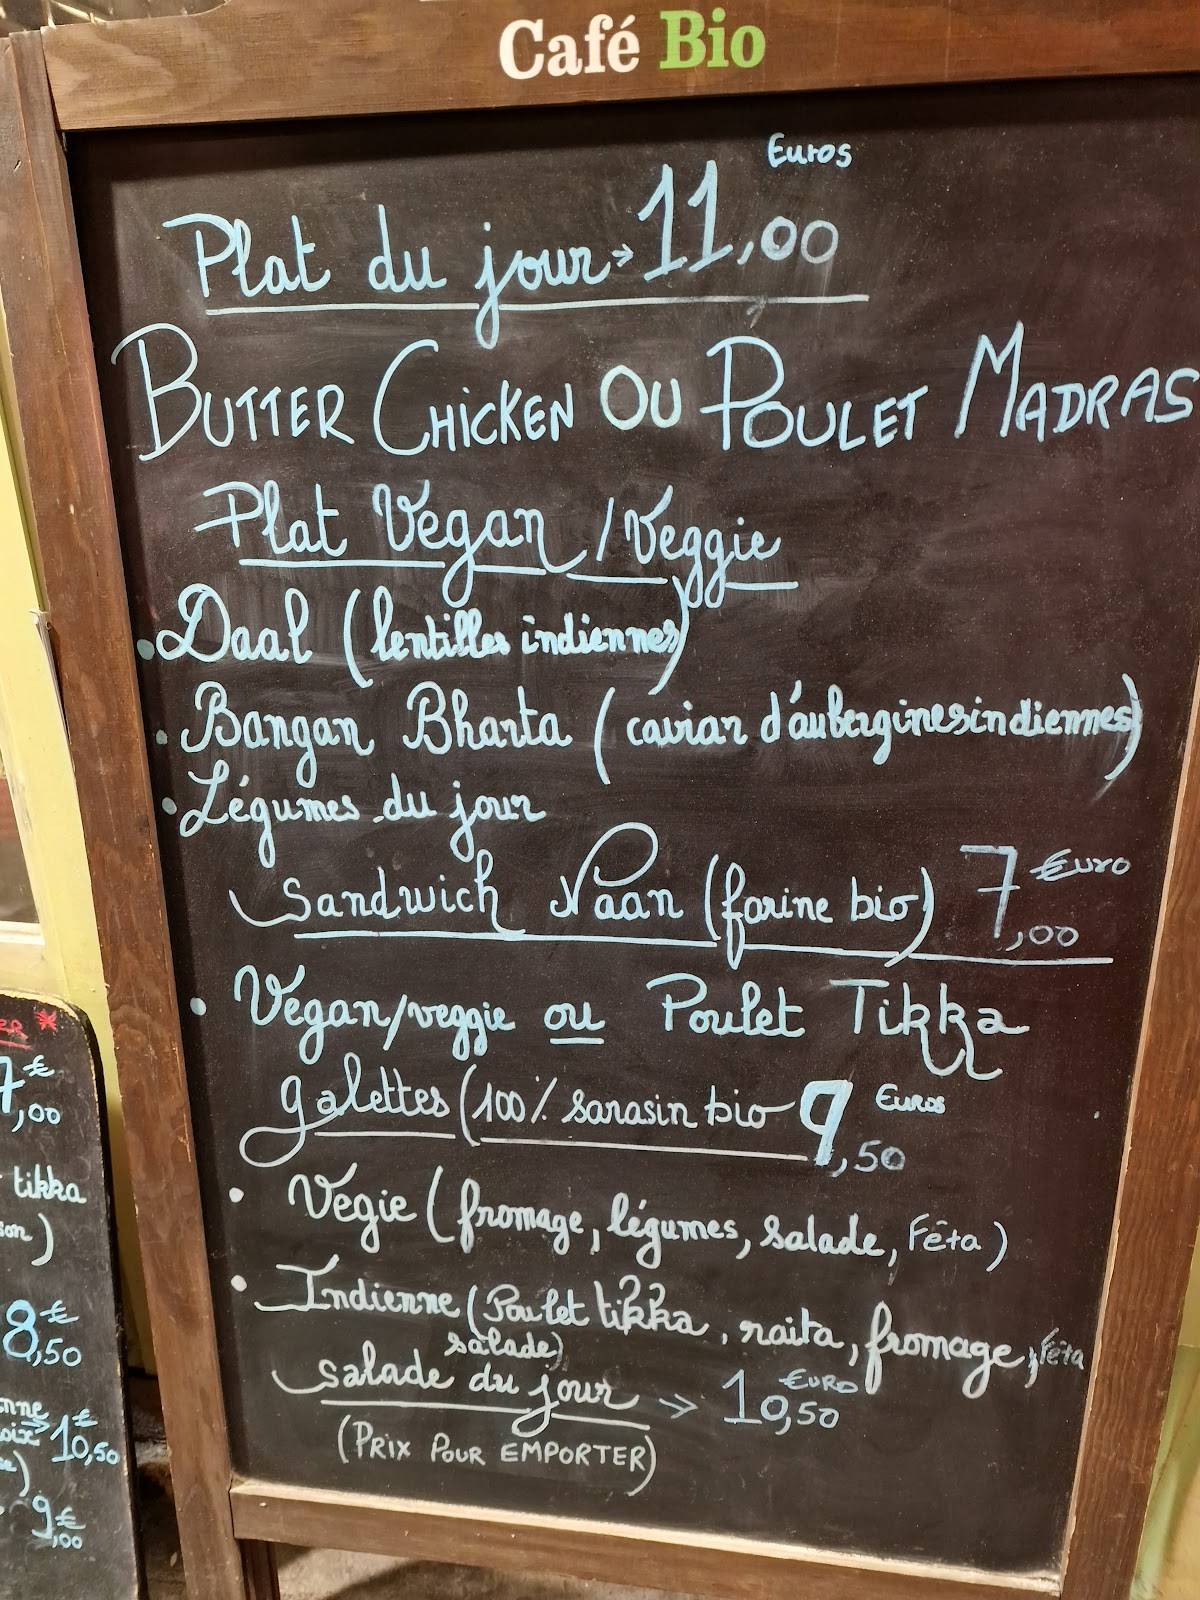 Café Bio
Euros
Plat du jour → 11,00
BUTTER CHICKEN OU POULET MADRAS
Plat Vegan / Veggie
• Daal (lentilles indiennes)
• Bangan Bharta (caviar d'aubergines indiennes)
• Légumes du jour
Sandwich Naan (farine bio) 7,00 Euro
• Végan/veggie ou Poulet Tikka
galettes (100% sarasin bio 9,50 Euros
• Vegie (fromage, légumes, salade, Fêta)
• Indienne (Poulet tikka, raita, fromage, Fêta
salade)
salade du jour → 10,50 EURO
(PRIX POUR EMPORTER)
ER *
7,00 €
tikka
son)
8,50 €
nne
oix → 10,50 €
9,00 €